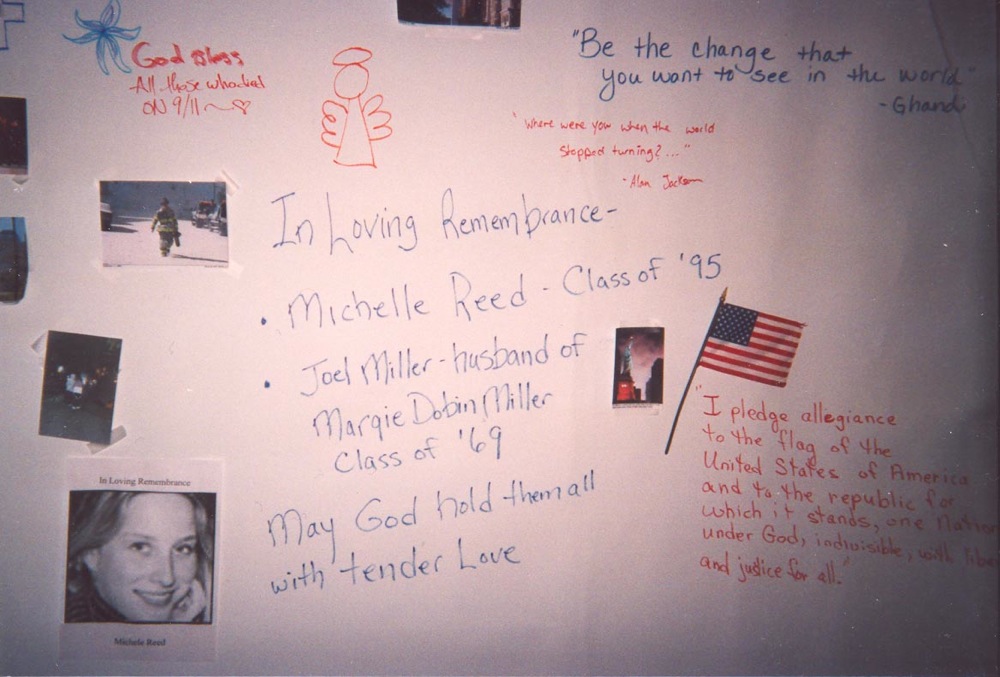 God Bless
All those who died
ON 9/11
"Be the change that
you want to see in the world"
- Ghandi
"Where were you when the world
stopped turning?..."
- Alan Jackson
In Loving Remembrance-
• Michelle Reed - Class of '95
• Joel Miller-husband of
Margie Dobin Miller
Class of '69
May God hold them all
with tender Love
"I pledge allegiance
to the flag of the
United States of America
and to the republic for
which it stands, one Nation
under God, indivisible, with
and justice for all."
In Loving Remembrance
Michele Reed